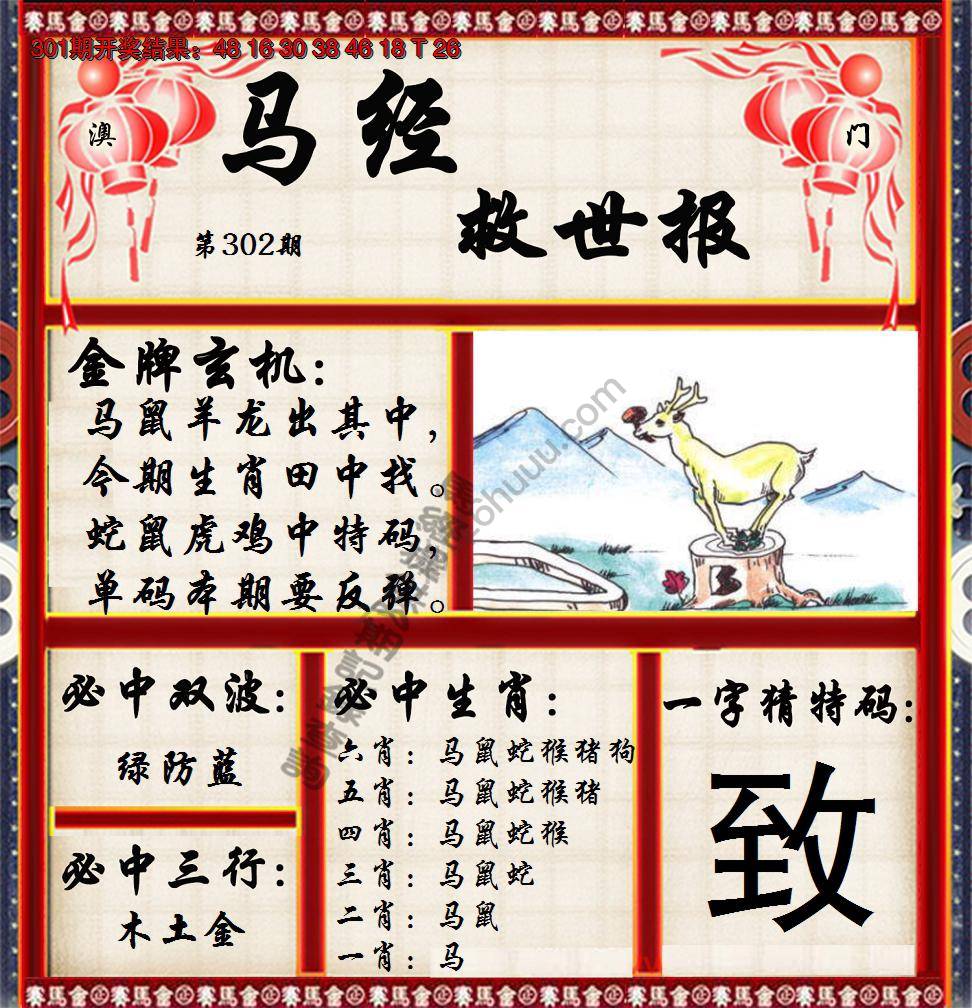 301期开奖结果：48 16 30 38 46 18 T 26
澳
门
马经
救世报
第302期
金牌玄机：
马鼠羊龙出其中，
今期生肖田中找。
蛇鼠虎鸡中特码，
单码本期要反弹。
必中双波：
绿防蓝
必中三行：
木土金
必中生肖：
六肖：马鼠蛇猴猪狗
五肖：马鼠蛇猴猪
四肖：马鼠蛇猴
三肖：马鼠蛇
二肖：马鼠
一肖：马
一字猜特码：
致